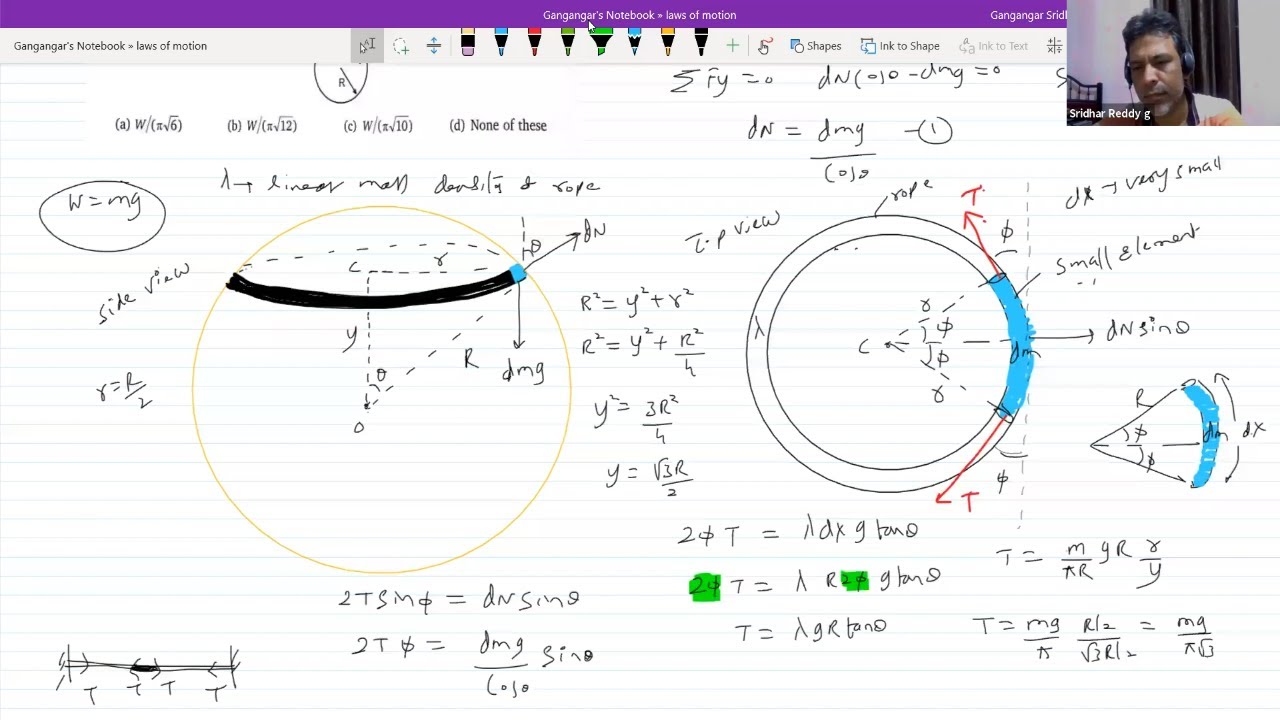 Gangangar's Notebook » laws of motion
Gangangar Sridh
Gangangar's Notebook » laws of motion
Shapes
Ink to Shape
Ink to Text
Sridhar Reddy g
R
(a) W/(π√6) (b) W/(π√12) (c) W/(π√10) (d) None of these
ΣFy = 0 dN cosθ - dmg = 0
dN = dmg/cosθ —①
W = mg
λ → linear mass density of rope
side view
r = R/2
C r
dN
θ
y
R
dmg
θ
O
R² = y² + r²
R² = y² + R²/4
y² = 3R²/4
y = √3R/2
Top view
rope
T
ϕ
dx → very small
small element
λ
r
ϕ
C
ϕ
r
dm
dN sinθ
T
ϕ
R
ϕ
ϕ
dm
dx
2Tsinϕ = dN sinθ
2Tϕ = dmg/cosθ sinθ
T T T T
2ϕ T = λ dx g tanθ
2ϕ T = λ R 2ϕ g tanθ
T = λ g R tanθ
T = m/πR gR r/y
T = mg/π R/2/√3R/2 = mg/π√3